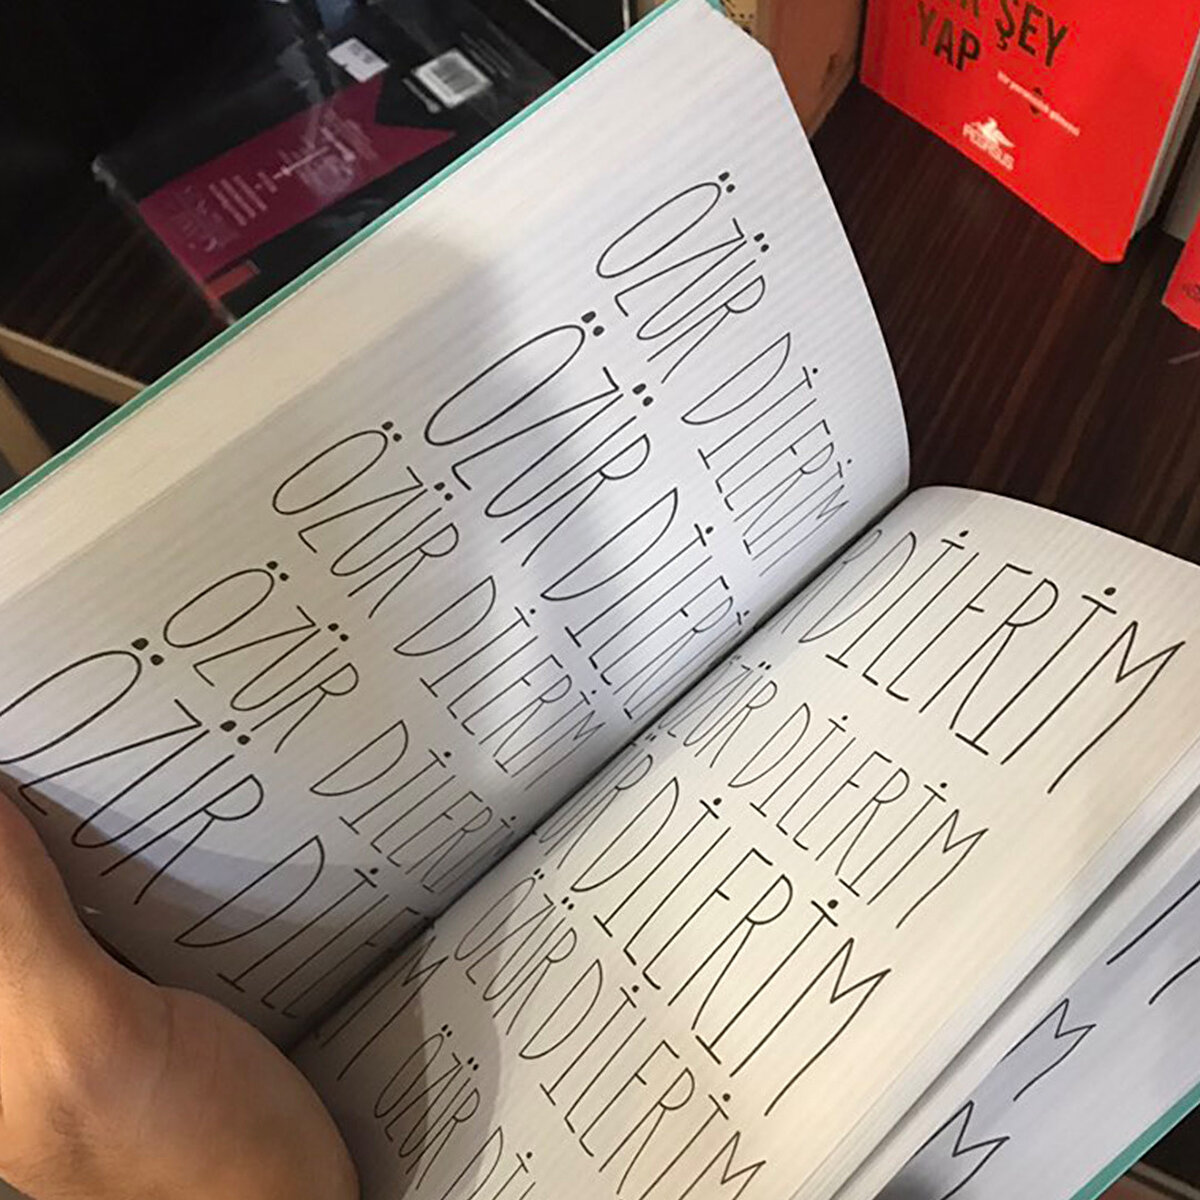 ŞEY
YAP
PEGASUS
ÖZÜR DİLERİM
ÖZÜR DİLERİ
ÖZÜR DİLERİM
ÖZÜR DİLERİ
ÖZÜR DİLE
R DİLERİM
ÖZÜR DİLERİM
ÖZÜR DİLERİM
ÖZÜR DİLERİM
ÖZÜR Dİ